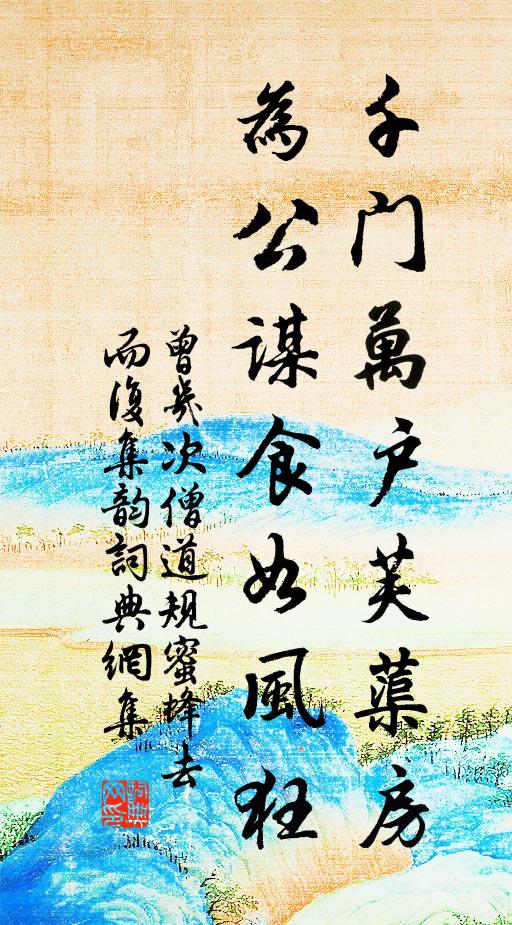 千门萬户芙蕖房
為公謀食如風狂
曾幾次僧道規蜜蜂去
而復集韵詞典網集